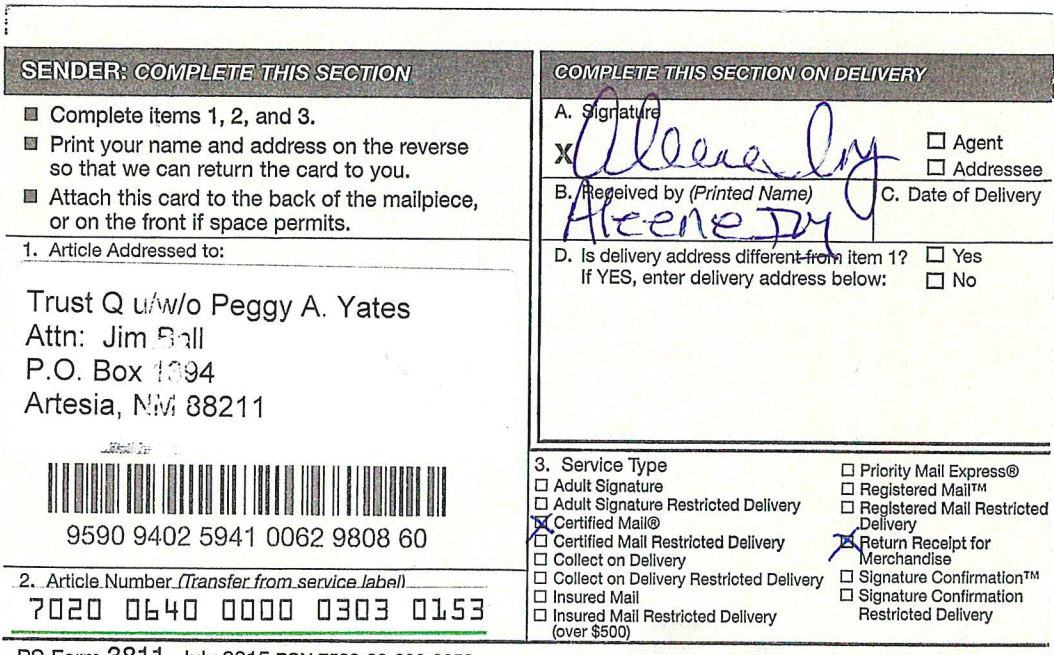 SENDER: COMPLETE THIS SECTION
■ Complete items 1, 2, and 3.
■ Print your name and address on the reverse
so that we can return the card to you.
■ Attach this card to the back of the mailpiece,
or on the front if space permits.
1. Article Addressed to:
Trust Q u/w/o Peggy A. Yates
Attn: Jim Ball
P.O. Box 1394
Artesia, NM 88211
9590 9402 5941 0062 9808 60
2. Article Number (Transfer from service label)
7020 0640 0000 0303 0153
COMPLETE THIS SECTION ON DELIVERY
A. Signature
X
☐ Agent
☐ Addressee
B. Received by (Printed Name)
C. Date of Delivery
Aleene
D. Is delivery address different from item 1? ☐ Yes
If YES, enter delivery address below: ☐ No
3. Service Type
☐ Adult Signature
☐ Adult Signature Restricted Delivery
☒ Certified Mail®
☐ Certified Mail Restricted Delivery
☐ Collect on Delivery
☐ Collect on Delivery Restricted Delivery
☐ Insured Mail
☐ Insured Mail Restricted Delivery
(over $500)
☐ Priority Mail Express®
☐ Registered Mail™
☐ Registered Mail Restricted
Delivery
☒ Return Receipt for
Merchandise
☐ Signature Confirmation™
☐ Signature Confirmation
Restricted Delivery
PS Form 3811, July 2015